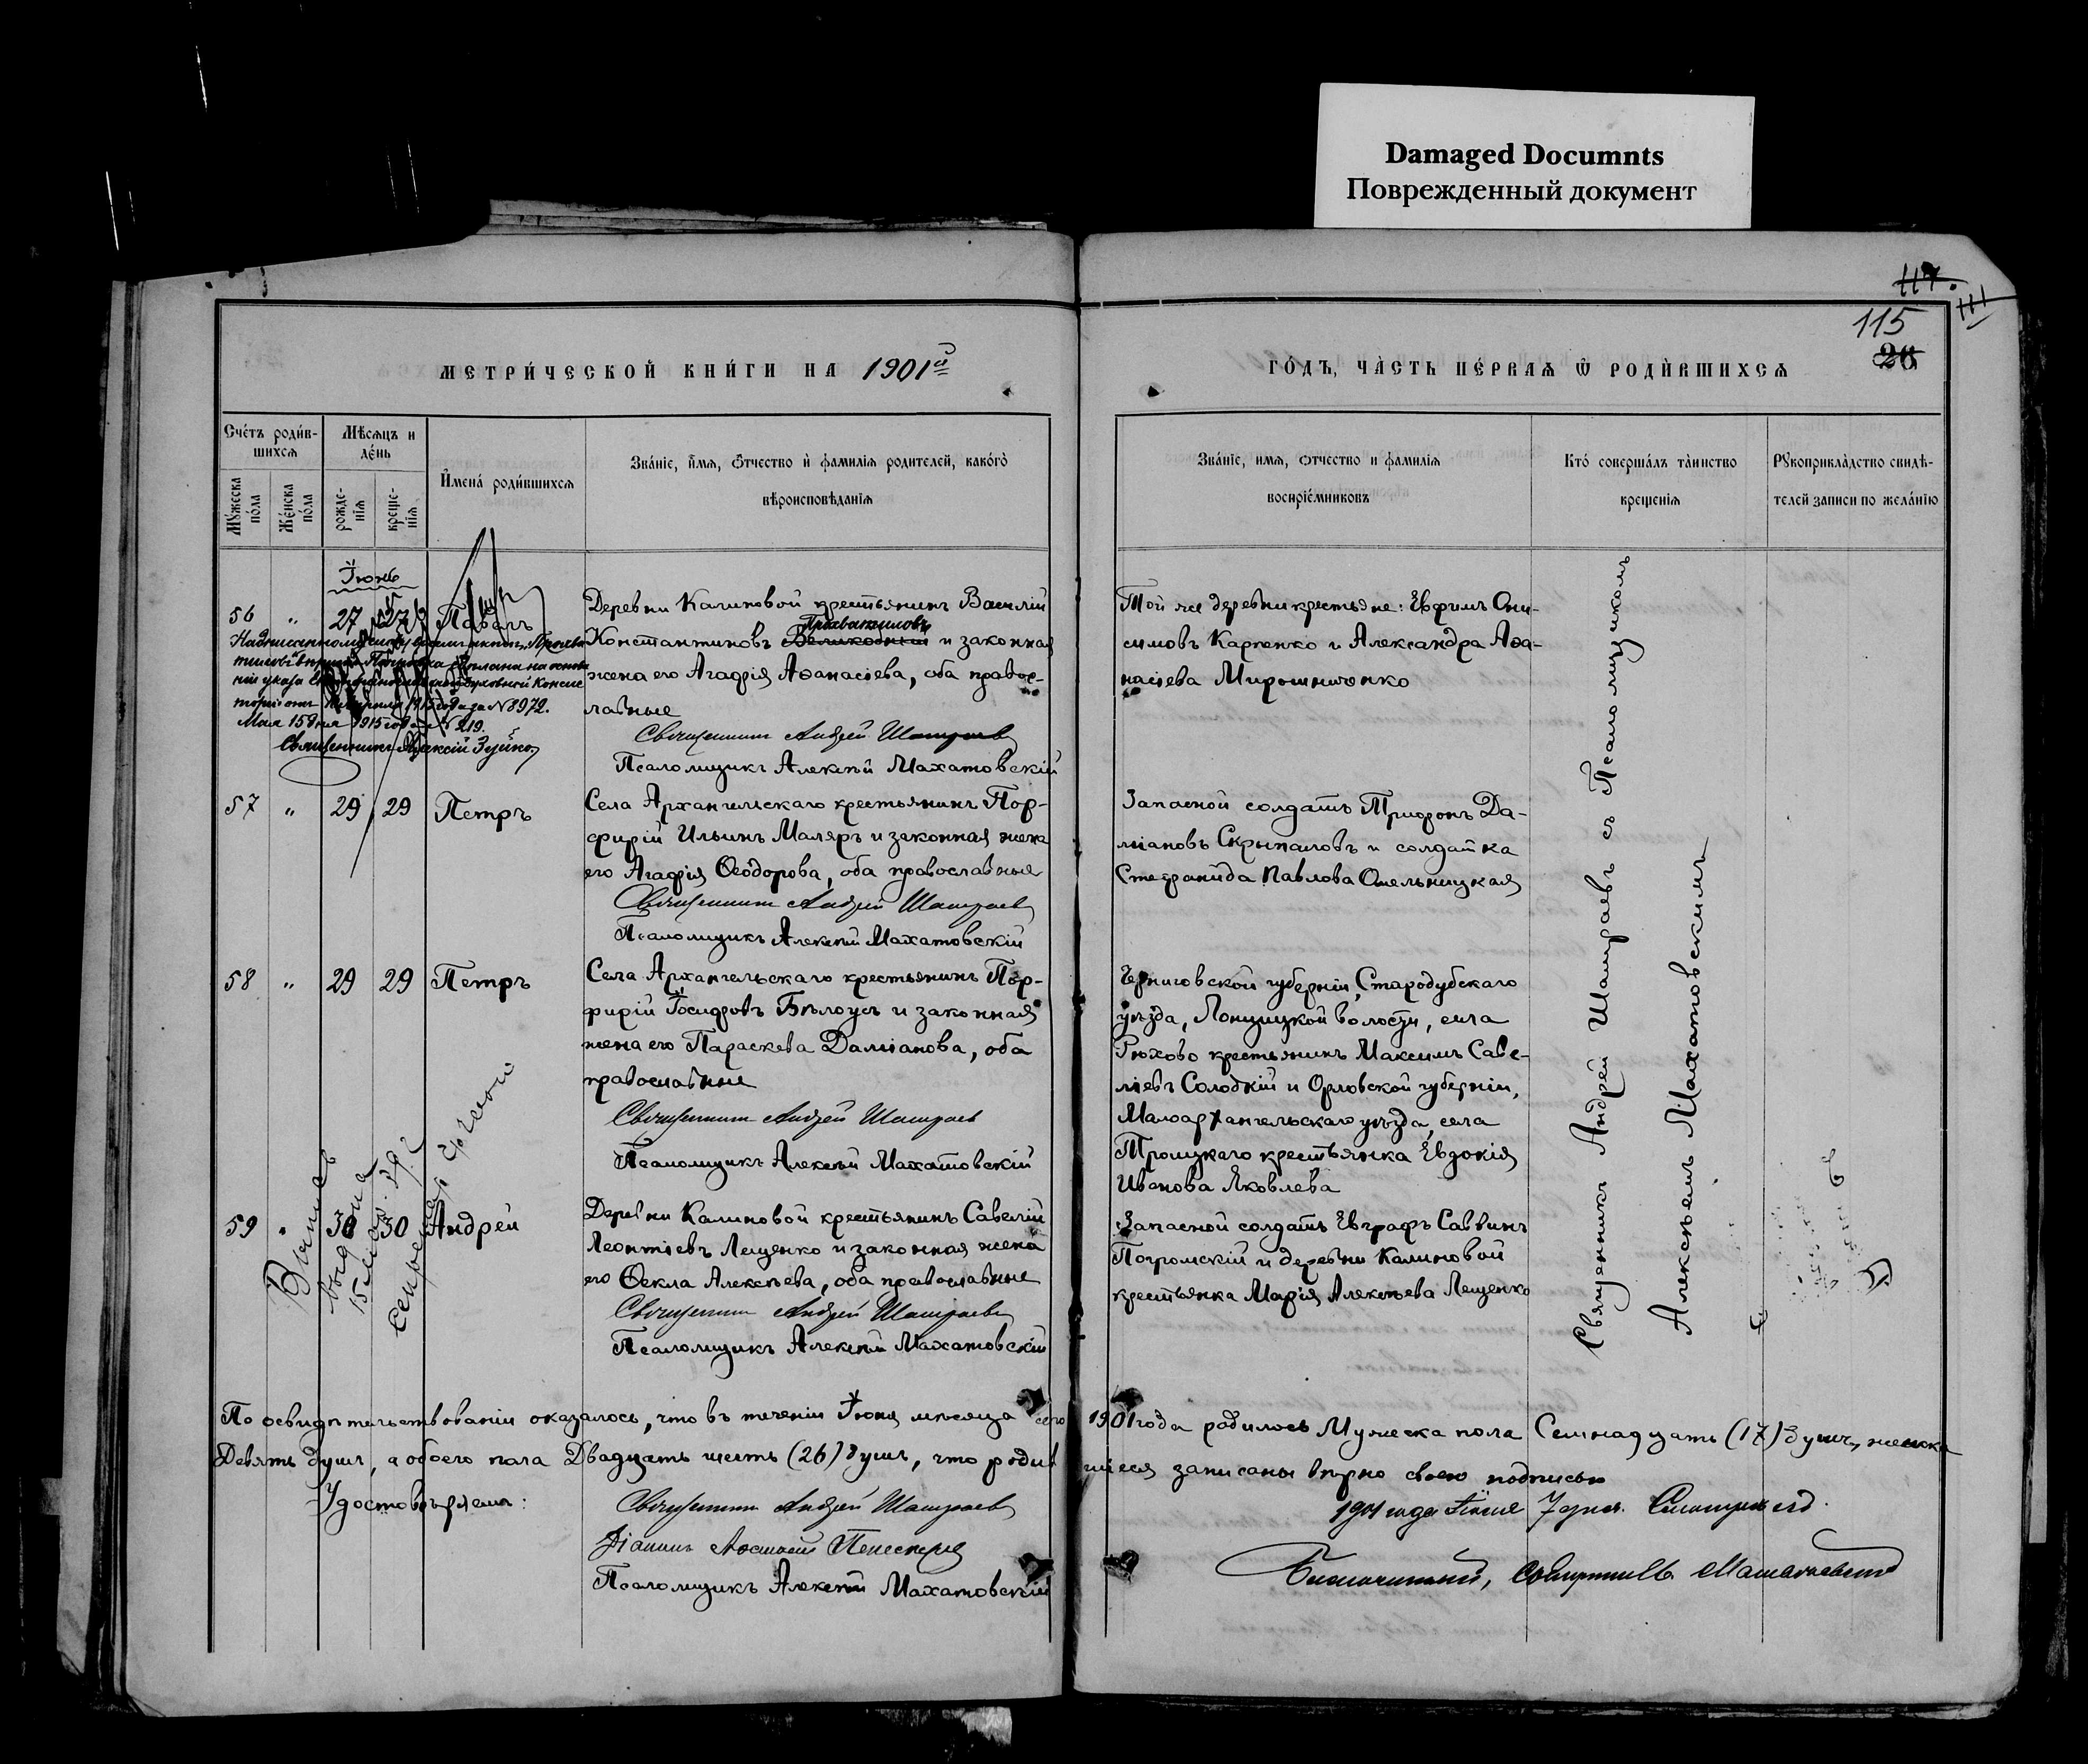 Damaged Documnts
Поврежденный документ
117.
111
115
26
МЕТРИ́ЧЕСКОЙ КНИ́ГИ НА 1901й
ГО́ДЪ, ЧА̀СТЬ ПЕ́РВАѦ Ѿ РОДЍВШИХСѦ
Счéтъ роди́в-
шихсѧ
Мꙋ́жеска
по́ла
Же́нска
по́ла
Мѣ́сѧцъ и
де́нь
рожде-
нїѧ
креще-
нїѧ
И҆мена́ роди́вшихсѧ
Зва́нїе, и҆́мѧ, ѻ҆́тчество и҆ фамилїѧ родителей, како́гѡ
вѣроисповѣ́данїѧ
Зва́нїе, имѧ, ѻтчество и фамилїѧ
воспрїе́мниковъ
Кто́ соверша́лъ та̀инство
креще́нїѧ
Рꙋкоприкла̀дство свидѣ́-
телей записи по жела́нїю
Іюнь
56 " 27 27 Павелъ
Деревни Калиновой крестьянинъ Василій
Прохватиловъ
Константиновъ Великодный и законная
жена его Агафія Аѳанасіева, оба правос-
лавные
Священникъ Андрей Шатраев
Псаломщикъ Алексѣй Махатовскій
Той же деревни крестьяне: Евфимъ Они-
симовъ Карпенко и Александра Аѳа-
насіева Мирошниченко
1915 года за N 8972.
Мая 15 дня 1915 года N 219.
Священникъ Алексій Зуйко
57 " 29 29 Петръ
Села Архангельскаго крестьянинъ Пор-
фирій Ильинъ Маляръ и законная жена
его Агафія Ѳеодорова, оба православные
Священникъ Андрей Шатраев
Псаломщикъ Алексѣй Махатовскій
Запасной солдатъ Трифонъ Да-
міановъ Скрыпаловъ и солдатка
Стефанида Павлова Омельницкая
58 " 29 29 Петръ
Села Архангельскаго крестьянинъ Пор-
фирій Іосифовъ Бѣлоусъ и законная
жена его Параскева Даміанова, оба
православные
Священникъ Андрей Шатраев
Псаломщикъ Алексѣй Махатовскій
Черниговской губерніи, Стародубскаго
уѣзда, волости, села
Рюхово крестьянинъ Максимъ Саве-
ліевъ Солодкій и Орловской губерніи,
Малоархангельскаго уѣзда, села
Троицкаго крестьянка Евдокія
Иванова Яковлева
59 " 30 30 Андрей
Деревни Калиновой крестьянинъ Савелій
Леонтіевъ Лещенко и законная жена
его Ѳекла Алексѣева, оба православные
Священникъ Андрей Шатраев
Псаломщикъ Алексѣй Махатовскій
Запасной солдатъ Евграфъ Саввинъ
Погромскій и деревни Калиновой
крестьянка Марія Алексѣева Лещенко
Священникъ Андрей Шатраевъ съ Псаломщикомъ
Алексѣемъ Махатовскимъ
По освидѣтельствованіи оказалось, что въ теченіи Іюня мѣсяца сего 1901 года родилось Мужеска пола Семнадцать (17) душъ, женска
Девять душъ, а обоего пола Двадцать шесть (26) душъ, что родившіеся записаны вѣрно своею подписью
Удостовѣряемъ:
Священникъ Андрей Шатраев
Псаломщикъ Алексѣй Махатовскій
1901 года 7 дня.
Благочинный,